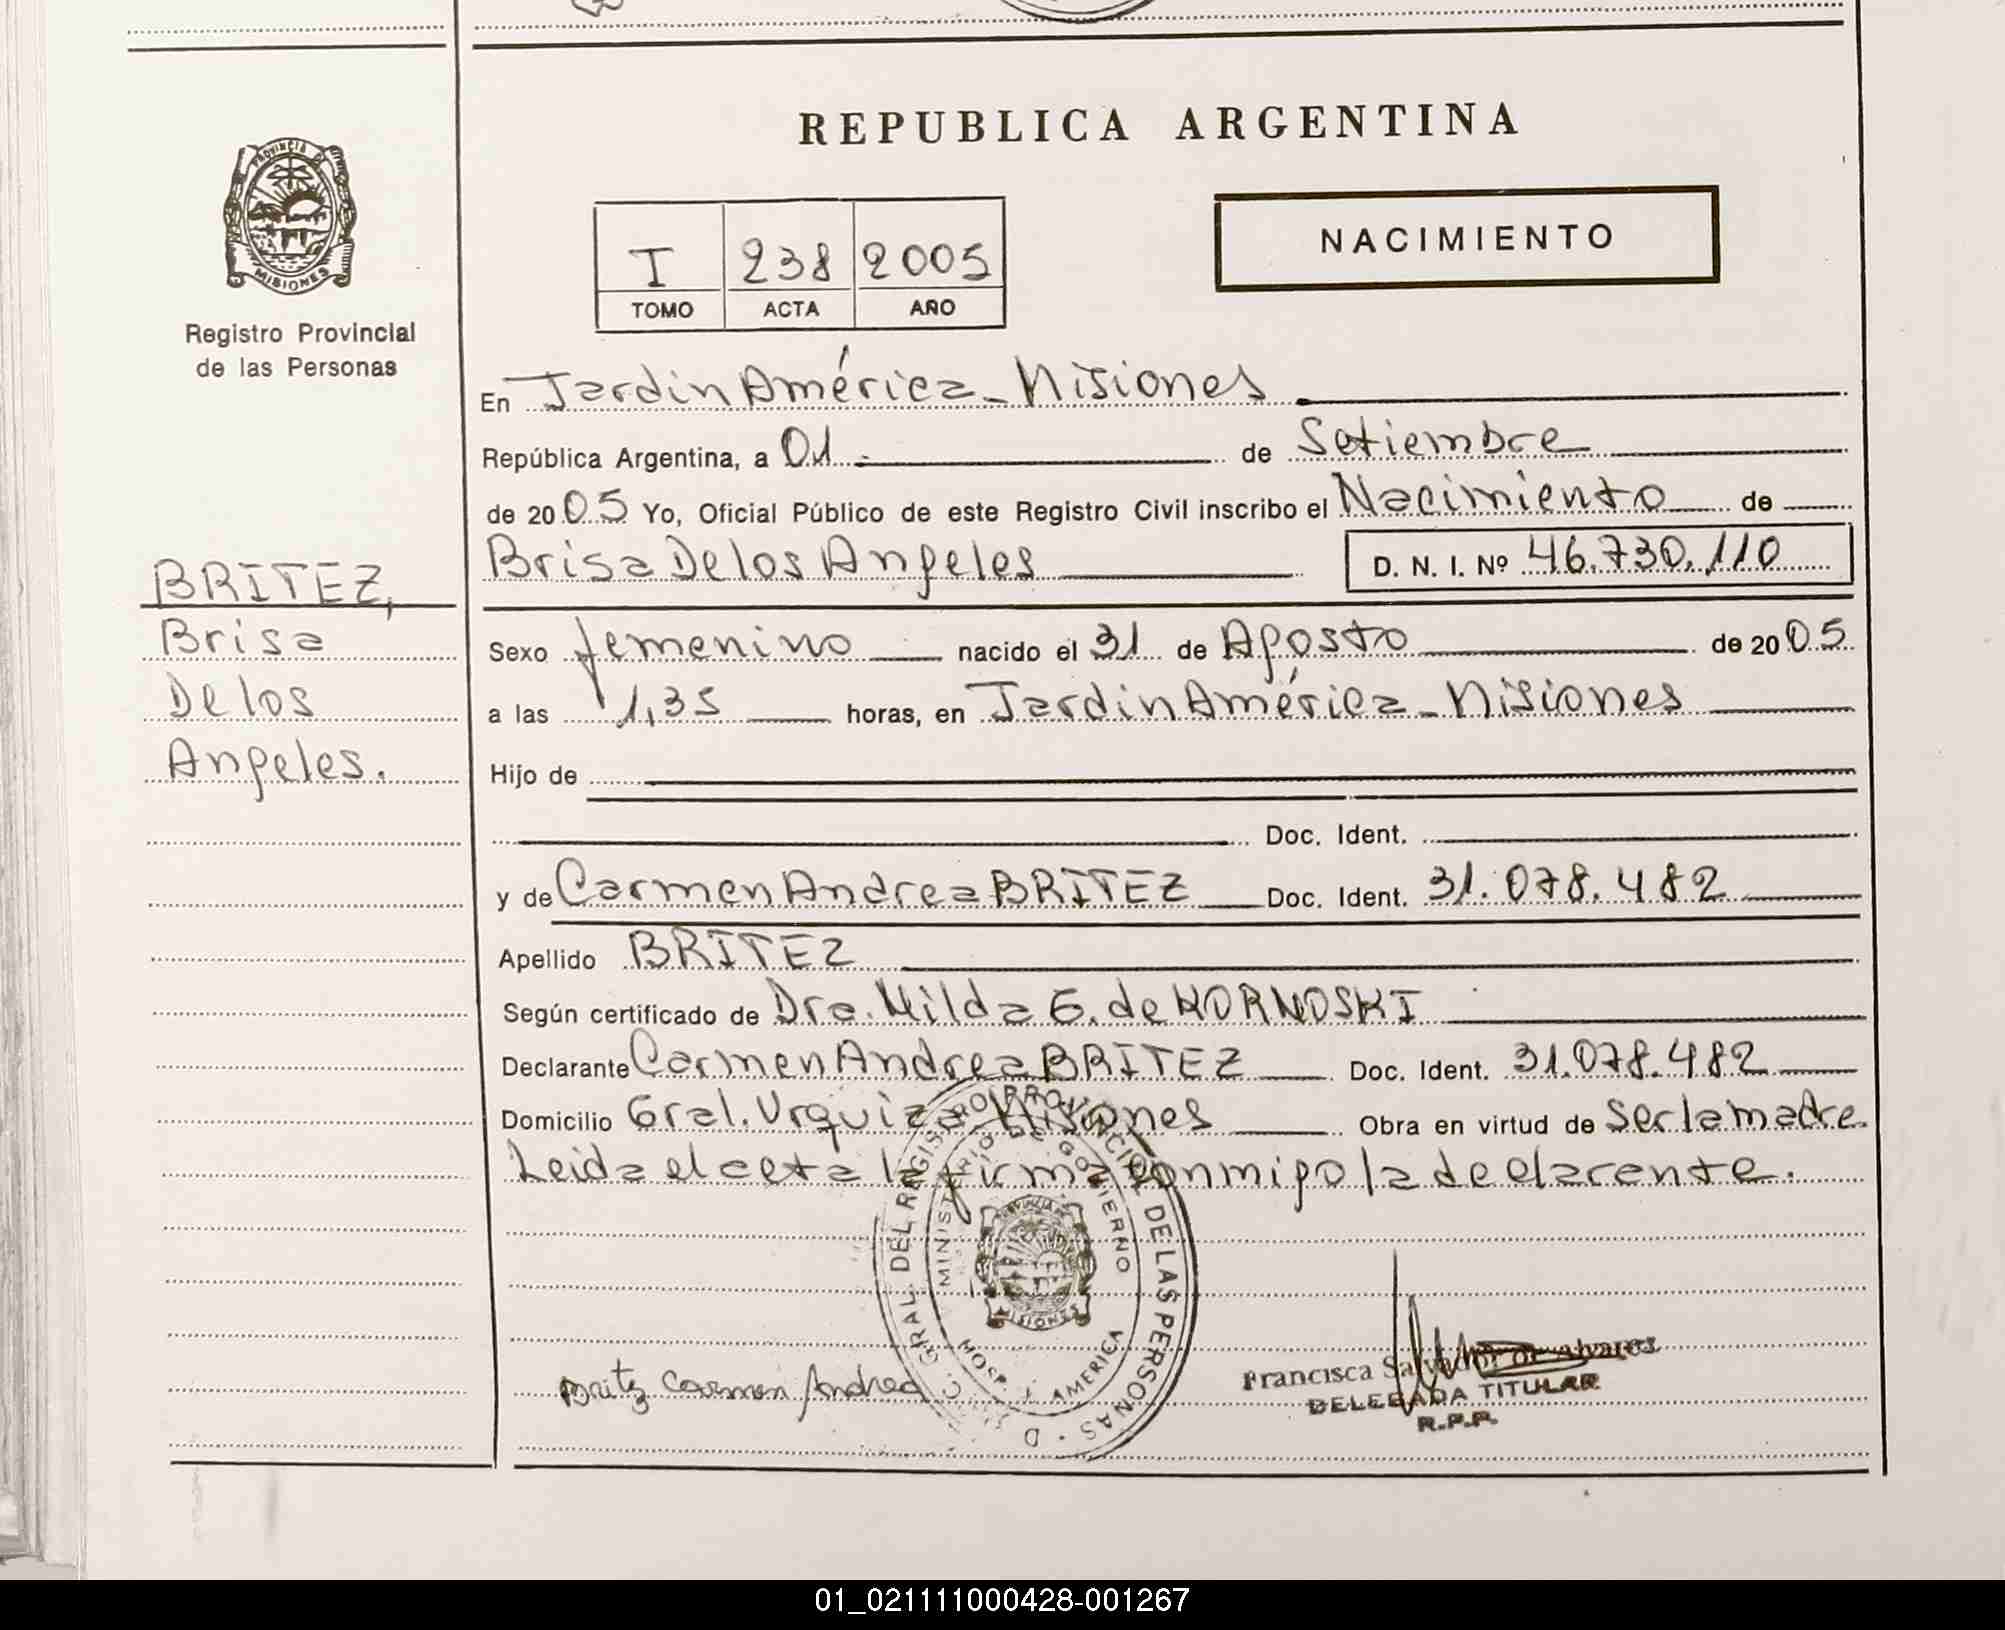 REPUBLICA ARGENTINA
PROVINCIA DE
MISIONES
Registro Provincial
de las Personas
I 238 2005
TOMO ACTA AÑO
NACIMIENTO
En Jardin América - Misiones
República Argentina, a 01 de Setiembre
de 2005 Yo, Oficial Público de este Registro Civil inscribo el Nacimiento de
Brisa De los Angeles D. N. I. Nº 46.730.110
BRITEZ,
Brisa
De los
Angeles.
Sexo femenino nacido el 31 de Agosto de 2005
a las 1,35 horas, en Jardin América - Misiones
Hijo de
Doc. Ident.
y de Carmen Andrea BRITEZ Doc. Ident. 31.078.482
Apellido BRITEZ
Según certificado de Dra. Hilda G. de KORNOSKI
Declarante Carmen Andrea BRITEZ Doc. Ident. 31.078.482
Domicilio Gral. Urquiza Misiones Obra en virtud de Ser la madre.
Leida el acta la firma conmigo la declarante.
GRAL. DEL REGISTRO PROVINCIAL DE LAS PERSONAS
MINISTERIO DE GOBIERNO
MISIONES
HOSP. J. AMERICA
Britz Carmen Andrea
Francisca de Alvarez
DELEGADA TITULAR
R.P.P.
01_021111000428-001267